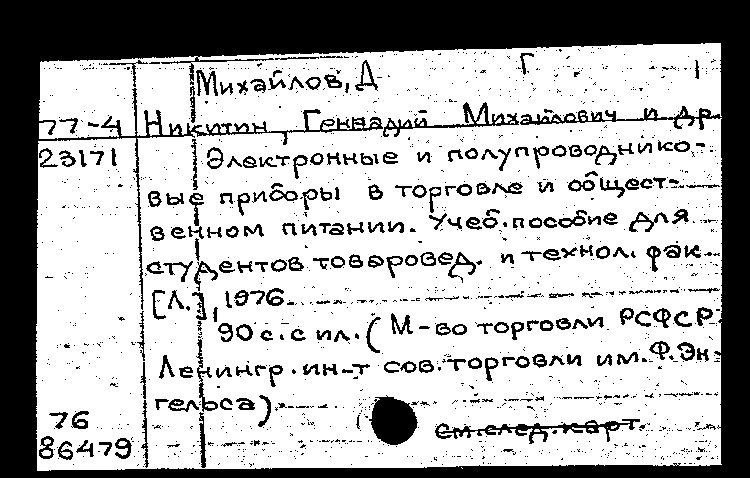 Михайлов, Д Г
77-4 Никитин, Геннадий Михайлович и др.
23171 Электронные и полупроводнико-
вые приборы в торговле и общест-
венном питании. Учеб. пособие для
студентов товаровед. и технол. фак
[Л.], 1976.
90 с. с ил. (М-во торговли РСФСР
Ленингр. ин-т сов. торговли им. Ф. Эн-
гельса).
76
86479
см. след. карт.